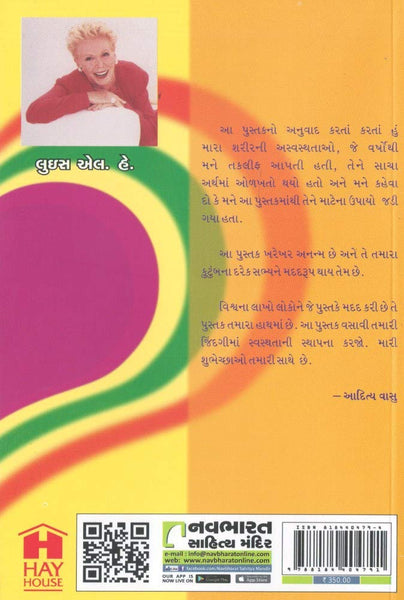 લુઇસ એલ. હે.
આ પુસ્તકનો અનુવાદ કરતાં કરતાં હું
મારા શરીરની અસ્વસ્થતાઓ, જે વર્ષોથી
મને તકલીફ આપતી હતી, તેને સાચા
અર્થમાં ઓળખતો થયો હતો અને મને કહેવા
દો કે મને આ પુસ્તકમાંથી તેને માટેના ઉપાયો જડી
ગયા હતા.
આ પુસ્તક ખરેખર અનન્મ છે અને તે તમારા
કુટુંબના દરેક સભ્યને મદદરૂપ થાય તેમ છે.
વિશ્વના લાખો લોકોને જે પુસ્તકે મદદ કરી છે તે
પુસ્તક તમારા હાથમાં છે. આ પુસ્તક વસાવી તમારી
જિંદગીમાં સ્વસ્થતાની સ્થાપના કરજો. મારી
શુભેચ્છાઓ તમારી સાથે છે.
– આદિત્ય વાસુ
HAY
HOUSE
નવભારત
સાહિત્ય મંદિર
e-mail : info@navbharatonline.com
web: www.navbharatonline.com
OUR APP IS
NOW LIVE ON
Google Play
App Store
facebook.com/Navbharat Sahitya Mandir
ISBN 818440479-4
9 788184 404791
₹ 350.00